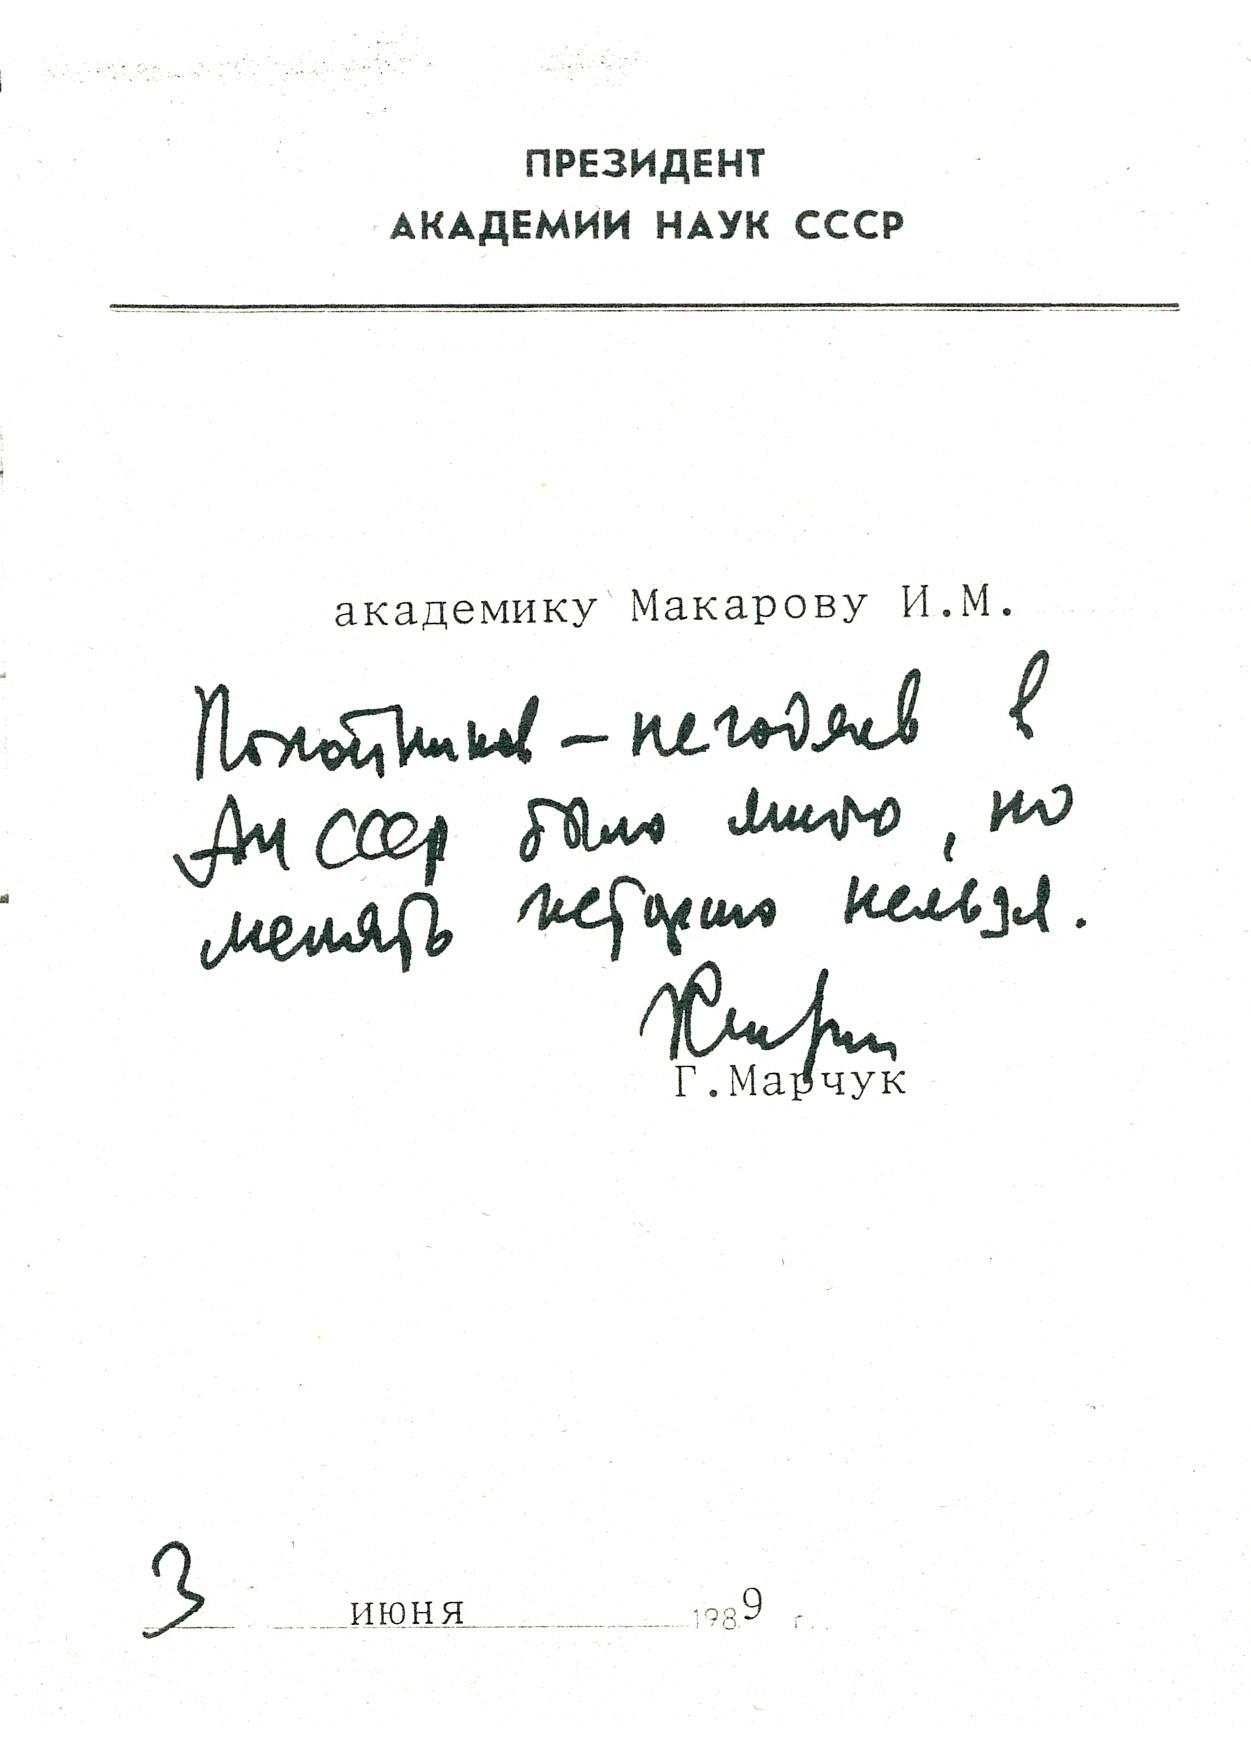 ПРЕЗИДЕНТ
АКАДЕМИИ НАУК СССР
академику Макарову И.М.
Покойников – негодяев в
АН СССР было много, но
менять историю нельзя.
Г.Марчук
3 июня 1989 г.